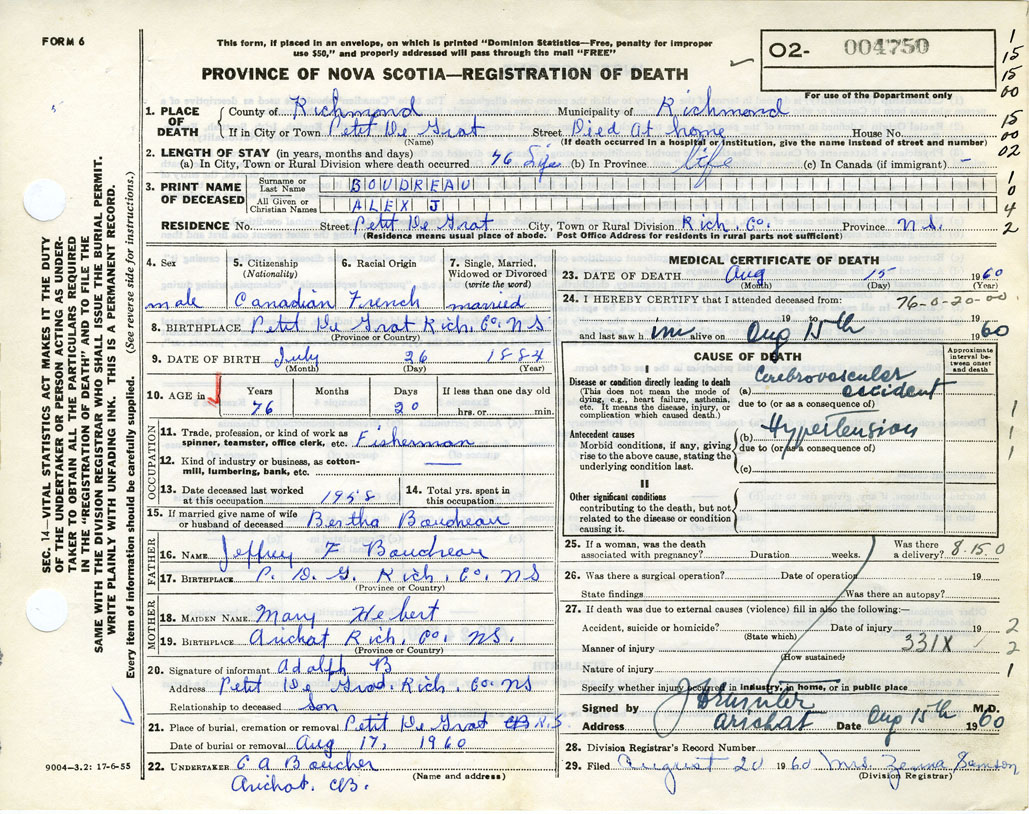 FORM 6
This form, if placed in an envelope, on which is printed "Dominion Statistics—Free, penalty for improper
use $50," and properly addressed will pass through the mail "FREE"
PROVINCE OF NOVA SCOTIA—REGISTRATION OF DEATH
O2- 004750
For use of the Department only
1. PLACE OF DEATH
County of Richmond Municipality of Richmond
If in City or Town Petit De Grat Street Died At home House No.
(Name) (If death occurred in a hospital or institution, give the name instead of street and number)
2. LENGTH OF STAY (in years, months and days)
(a) In City, Town or Rural Division where death occurred 76 (b) In Province life (c) In Canada (if immigrant) -
3. PRINT NAME OF DECEASED
Surname or Last Name BOUDREAU
All Given or Christian Names ALEX J
RESIDENCE No. Street Petit De Grat City, Town or Rural Division Rich. Co. Province N.S.
(Residence means usual place of abode. Post Office Address for residents in rural parts not sufficient)
4. Sex male
5. Citizenship (Nationality) Canadian
6. Racial Origin French
7. Single, Married, Widowed or Divorced (write the word) married
8. BIRTHPLACE Petit De Grat Rich. Co. N S
(Province or Country)
9. DATE OF BIRTH July 26 1884
(Month) (Day) (Year)
10. AGE in Years 76 Months Days 20 If less than one day old hrs. or min.
OCCUPATION
11. Trade, profession, or kind of work as spinner, teamster, office clerk, etc. Fisherman
12. Kind of industry or business, as cotton-mill, lumbering, bank, etc. —
13. Date deceased last worked at this occupation 1958
14. Total yrs. spent in this occupation
15. If married give name of wife or husband of deceased Bertha Boudreau
FATHER
16. NAME Jeffrey F Boudreau
17. BIRTHPLACE P. D. G. Rich. Co. N S
(Province or Country)
MOTHER
18. MAIDEN NAME Mary Hebert
19. BIRTHPLACE Arichat Rich. Co. N S.
(Province or Country)
20. Signature of informant Adolph B
Address Petit De Grat. Rich. Co. N S
Relationship to deceased Son
21. Place of burial, cremation or removal Petit De Grat CB N.S.
Date of burial or removal Aug 17, 1960
22. UNDERTAKER C A Boucher
(Name and address)
Arichat. CB.
MEDICAL CERTIFICATE OF DEATH
23. DATE OF DEATH Aug 15 1960
(Month) (Day) (Year)
24. I HEREBY CERTIFY that I attended deceased from:
76-0-20-00
19 to 19
and last saw h im alive on Aug 15th 1960
CAUSE OF DEATH
Approximate interval between onset and death
I
Disease or condition directly leading to death
(This does not mean the mode of dying, e.g., heart failure, asthenia, etc. It means the disease, injury, or complication which caused death.)
(a) Cerebrovascular accident
due to (or as a consequence of)
Antecedent causes
Morbid conditions, if any, giving rise to the above cause, stating the underlying condition last.
(b) Hypertension
due to (or as a consequence of)
(c)
II
Other significant conditions
contributing to the death, but not related to the disease or condition causing it.
25. If a woman, was the death associated with pregnancy? Duration weeks. Was there a delivery? 8.150
26. Was there a surgical operation? Date of operation 19
State findings Was there an autopsy?
27. If death was due to external causes (violence) fill in also the following:—
Accident, suicide or homicide? Date of injury 19
(State which)
Manner of injury 331X
(How sustained)
Nature of injury
Specify whether injury occurred in industry, in home, or in public place
Signed by M.D.
Address Arichat Date Aug 15th 1960
28. Division Registrar's Record Number
29. Filed August 20 1960 Mrs. Zelma Samson
(Division Registrar)
SEC. 14—VITAL STATISTICS ACT MAKES IT THE DUTY
OF THE UNDERTAKER OR PERSON ACTING AS UNDER-
TAKER TO OBTAIN ALL THE PARTICULARS REQUIRED
IN THE "REGISTRATION OF DEATH" AND TO FILE THE
SAME WITH THE DIVISION REGISTRAR WHO SHALL ISSUE THE BURIAL PERMIT.
WRITE PLAINLY WITH UNFADING INK. THIS IS A PERMANENT RECORD.
Every item of information should be carefully supplied. (See reverse side for instructions.)
9004-3.2: 17-6-55
1
15
15
00
15
00
02
1
0
4
2
1
1
1
2
2
1